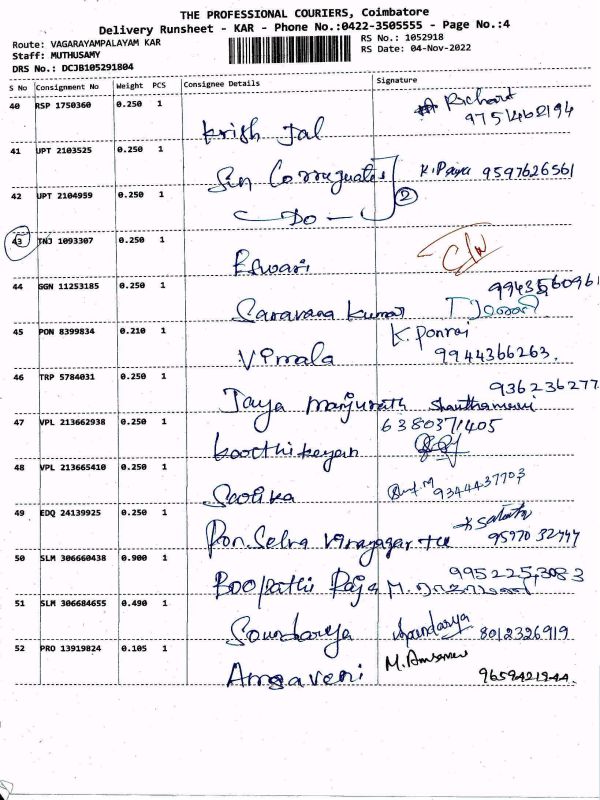 THE PROFESSIONAL COURIERS, Coimbatore
Delivery Runsheet - KAR - Phone No.:0422-3505555 - Page No.:4
Route: VAGARAYAMPALAYAM KAR
RS No.: 1052918
Staff: MUTHUSAMY
RS Date: 04-Nov-2022
DRS No.: DCJB105291804
S No Consignment No Weight PCS Consignee Details Signature
40 RSP 1750360 0.250 1
Richard
9751462194
Krish Jal
41 UPT 2103525 0.250 1
Sin Corrugates K. Paya 9597626561
42 UPT 2104959 0.250 1
2
- Do -
43 TNJ 1093307 0.250 1
Eswari
44 GGN 11253185 0.250 1
Saravana Kumar
45 PON 8399834 0.210 1
K. Ponraj
Vimala 9944366263.
46 TRP 5784031 0.250 1
936236277
Jaya Manjunath
47 VPL 213662938 0.250 1
6380371405
Karthikeyan
48 VPL 213665410 0.250 1
9344437703
Sarika
49 EDQ 24139925 0.250 1
Pon. Selva Vinayagar
50 SLM 306660438 0.900 1
9952253083
Boopathi Raja
51 SLM 306684655 0.490 1
Soundarya Soundarya 8012326919
52 PRO 13919824 0.105 1
Angaveni 9659421944.